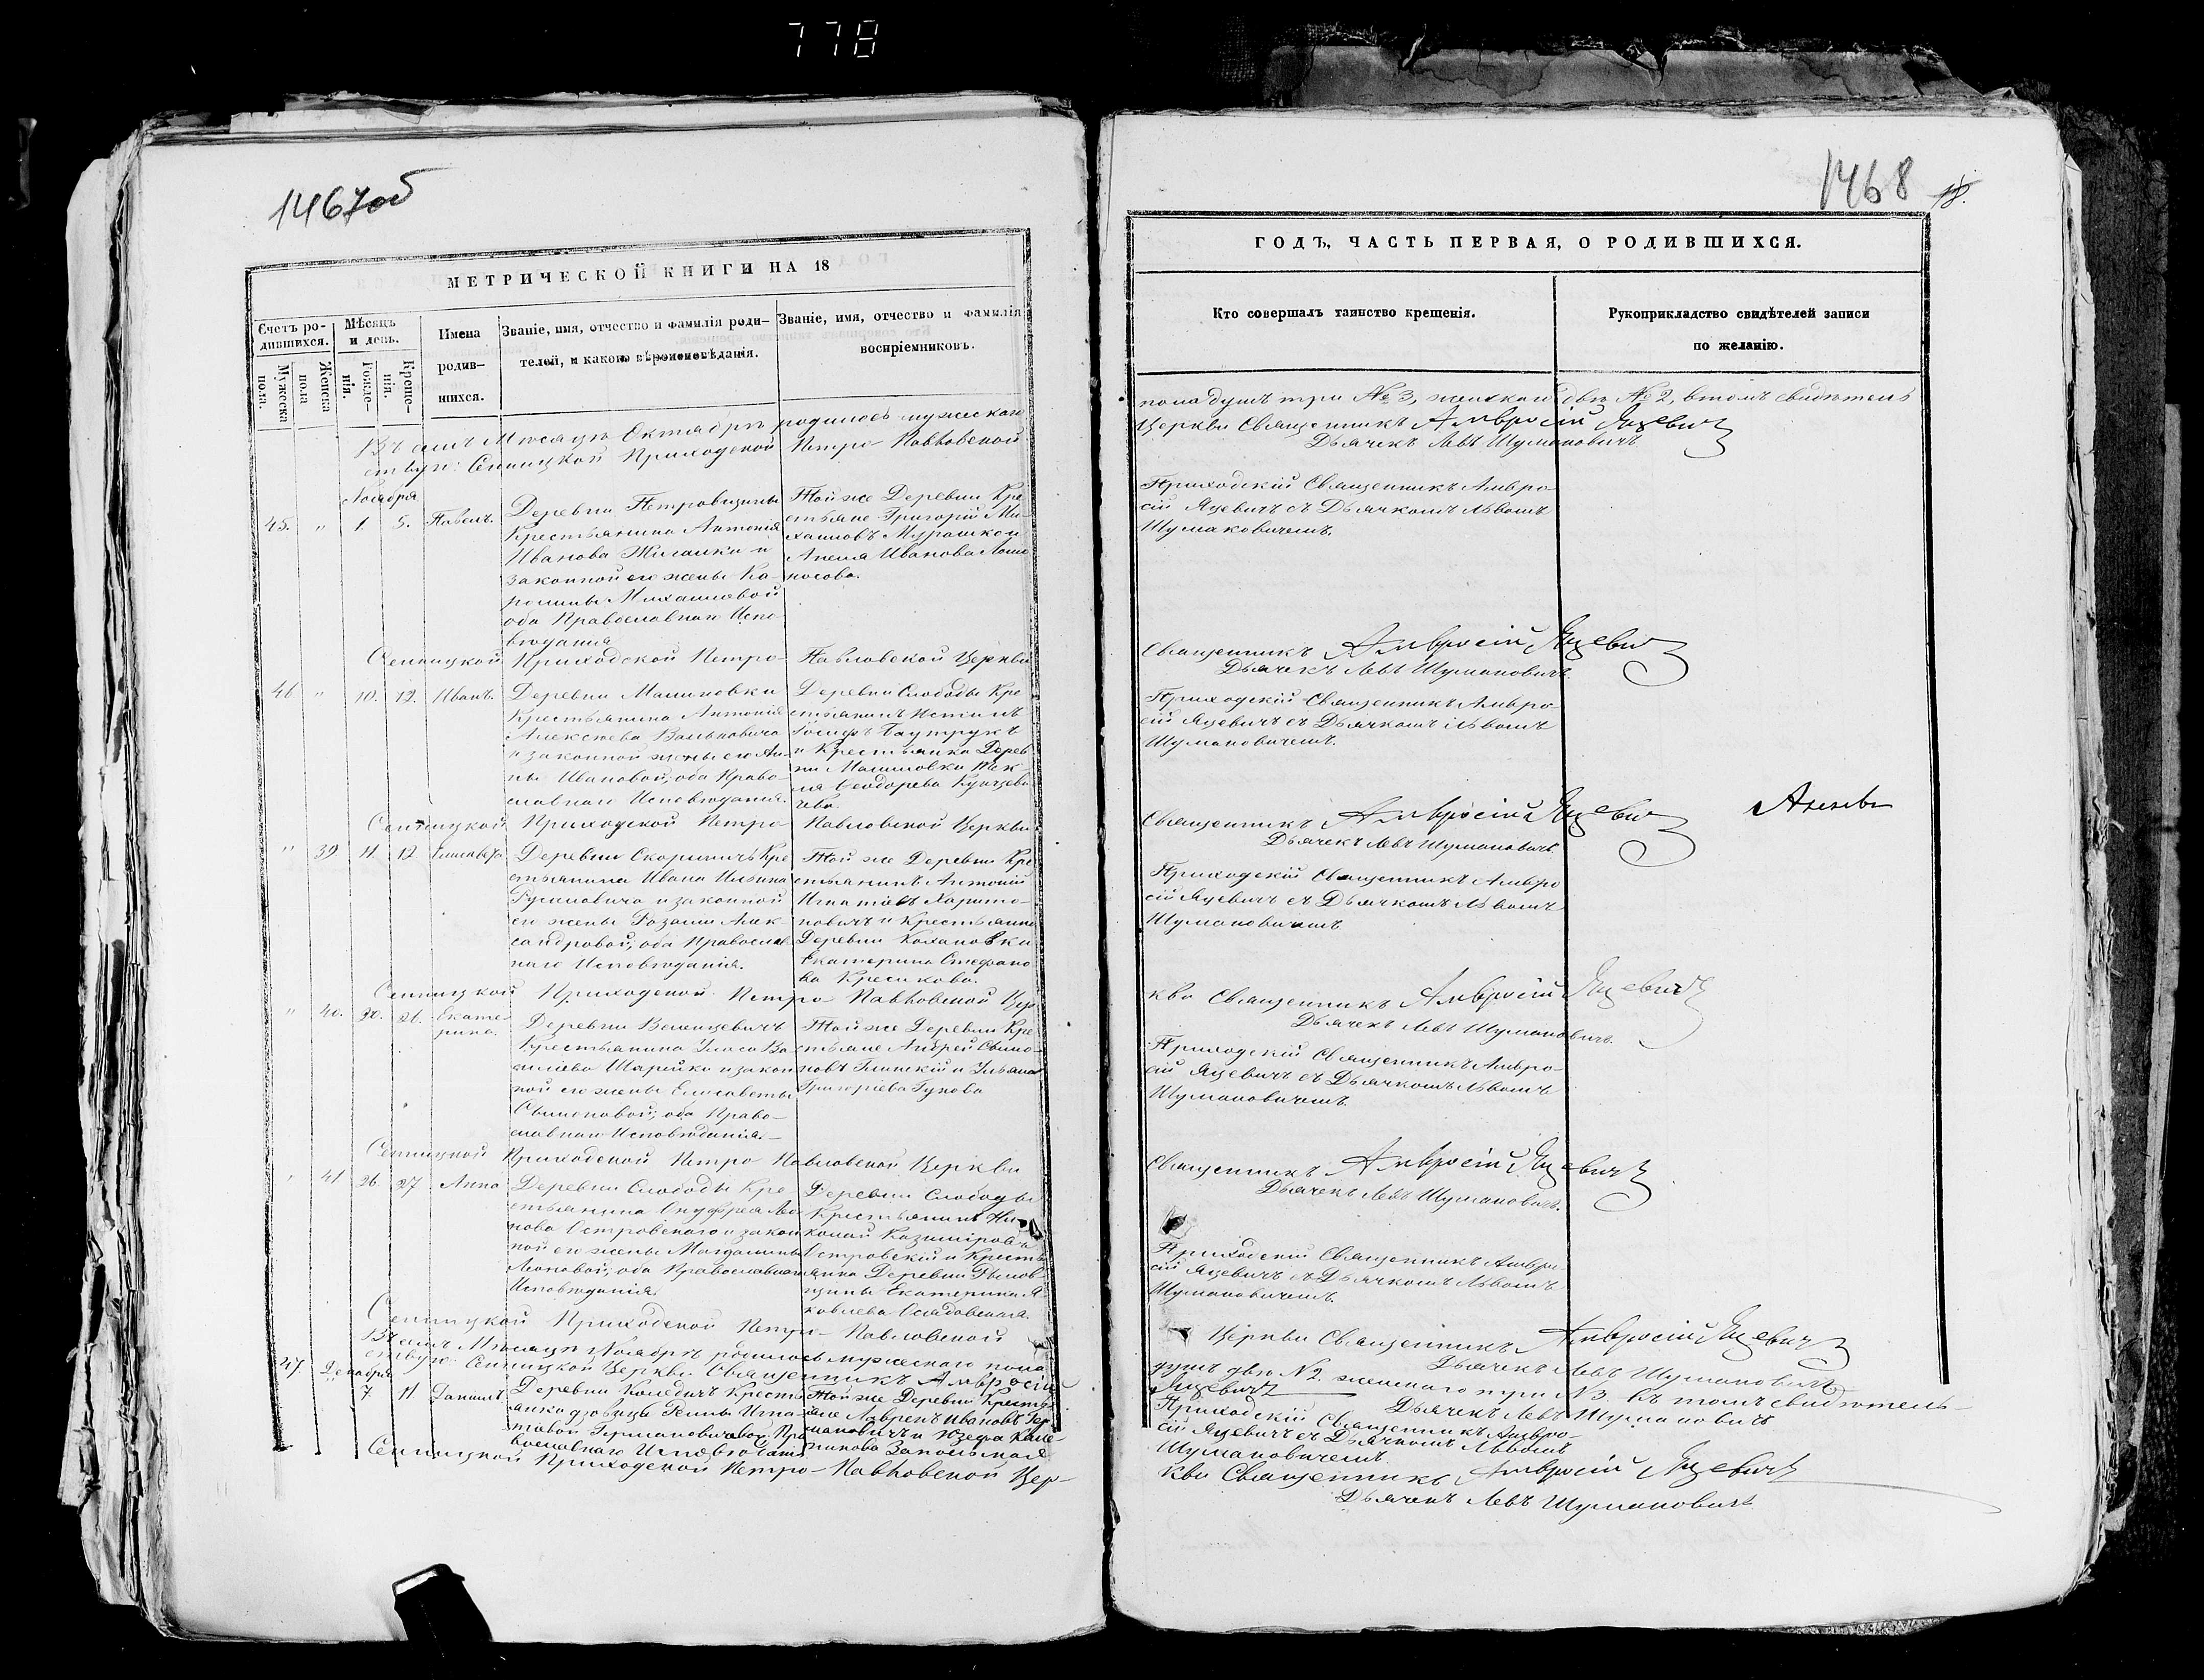 778
1467об
МЕТРИЧЕСКОЙ КНИГИ НА 18
Счетъ ро-
дившихся.
Мужеска
пола.
Женска
пола
Мѣсяцъ
и день.
Рожде-
нія.
Креще-
нія.
Имена
родив-
шихся.
Званіе, имя, отчество и фамилія роди-
телей, и какого вѣроисповѣданія.
Званіе, имя, отчество и фамилія
воспріемниковъ.
Въ семъ Мѣсяцѣ Октябрѣ родилось мужескаго
Сенницкой Приходской Петро-Павловской
Ноября
45. " 1. 5. Павелъ.
Деревни Петровщины
Крестьянина Антонія
Иванова и
законной его жены Ка-
ролины Михаиловой
оба Православнаго Испо-
вѣданія
Той же Деревни Кре
стьяне Григорій Ми-
хаиловъ Мурашко и
Иванова
Сенницкой Приходской Петро-Павловской Церкви
46 " 10. 12. Иванъ.
Деревни Малиновки
Крестьянина Антонія
Алексѣева
и законной жены его Ан-
ны Ивановой, оба Право-
славнаго Исповѣданія.
Деревни Слободы Кре
стьянинъ
и Крестьянка Дерев
ни Малиновки Тек-
ля Ѳеодорова
Сенницкой Приходской Петро-Павловской Церкви
" 39 11. 12. Елисавета
Деревни Скориничъ Кре
стьянина Ивана Ильина
и законной
его жены Розаліи Алек
сандровой, оба Православ
наго Исповѣданія.
Той же Деревни Кре
стьянинъ Антоній
Игнатовъ Харито-
новичъ и Крестьянка
Деревни Кохановки
Екатерина Стефано
ва
Сенницкой Приходской Петро-Павловской Цер
" 40. 20. 21. Екате-
рина.
Деревни
Крестьянина Ва
силіева Шарейко и закон
ной его жены Елисаветы
Сѵмеоновой, оба Право-
славнаго Исповѣданія.-
Той же Деревни Кре
стьяне Андрей Сѵмео-
новъ Глинскій и Ульяна
Григоріева
Сенницкой Приходской Петро-Павловской Церкви
" 41 26. 27. Анна
Деревни Слободы Кре
стьянина Онуфрея Ле
нова Островскаго и закон
ной его жены Магдалины
Леоновой, оба Православнаго
Исповѣданія.
Деревни Слободы
Крестьянинъ Ни-
колай Казиміровъ
Островскій и Кресть
янка Деревни
щины Екатерина Я
ковлева
Сенницкой Приходской Петро-Павловской
Въ семъ Мѣсяцѣ Ноябрѣ родилось мужескаго пола
Сенницкой Церкви Священникъ Амвросій
47. Декабря
7 11. Даніилъ
Деревни Коледичъ Кресть
янка дѣвицы Игна-
тіевой Германовичевой Пра
вославнаго Исповѣданія
Той же Деревни Кресть
яне Лаврен Ивановъ Гер
мановичъ и Юзефа
Сенницкой Приходской Петро-Павловской Цер-
1468
18.
ГОДЪ, ЧАСТЬ ПЕРВАЯ, О РОДИВШИХСЯ.
Кто совершалъ таинство крещенія.
Рукоприкладство свидѣтелей записи
по желанію.
пола душъ три №3, женскаго двѣ №2, въ томъ свидѣтель
Церкви Священникъ Амвросій Яцевичъ
Дьячекъ Левъ Шумановичъ.
Приходскій Священникъ Амвро-
сій Яцевичъ съ Дьячкомъ Львомъ
Шумановичемъ.
Священникъ Амвросій Яцевичъ
Дьячекъ Левъ Шумановичъ.
Приходскій Священникъ Амвро-
сій Яцевичъ съ Дьячкомъ Львомъ
Шумановичемъ.
Священникъ Амвросій Яцевичъ
Дьячекъ Левъ Шумановичъ.
Приходскій Священникъ Амвро
сій Яцевичъ съ Дьячкомъ Львомъ
Шумановичемъ
кви Священникъ Амвросій Яцевичъ
Дьячекъ Левъ Шумановичъ.
Приходскій Священникъ Амвро-
сій Яцевичъ съ Дьячкомъ Львомъ
Шумановичемъ.
Священникъ Амвросій Яцевичъ
Дьячекъ Левъ Шумановичъ.
Приходскій Священникъ Амвро-
сій Яцевичъ съ Дьячкомъ Львомъ
Шумановичемъ.
Церкви Священникъ Амвросій Яцевичъ
Дьячекъ Левъ Шумановичъ
душъ двѣ №2. женскаго три №3. въ томъ свидѣтель-
Яцевичъ
Дьячекъ Левъ Шумановичъ
Приходскій Священникъ Амвро-
сій Яцевичъ съ Дьячкомъ Львомъ
Шумановичемъ.
кви Священникъ Амвросій Яцевичъ
Дьячекъ Левъ Шумановичъ